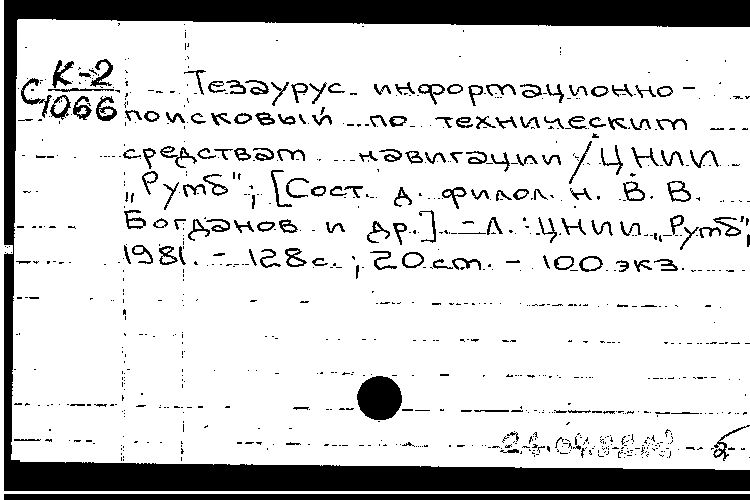 С К-2
1066
Тезаурус информационно-
поисковый по техническим
средствам навигации / ЦНИИ
„Румб"; [Сост. д. филол. н. В. В.
Богданов и др.]. - Л. : ЦНИИ „Румб",
1981. - 128 с. ; 20 см. - 100 экз.